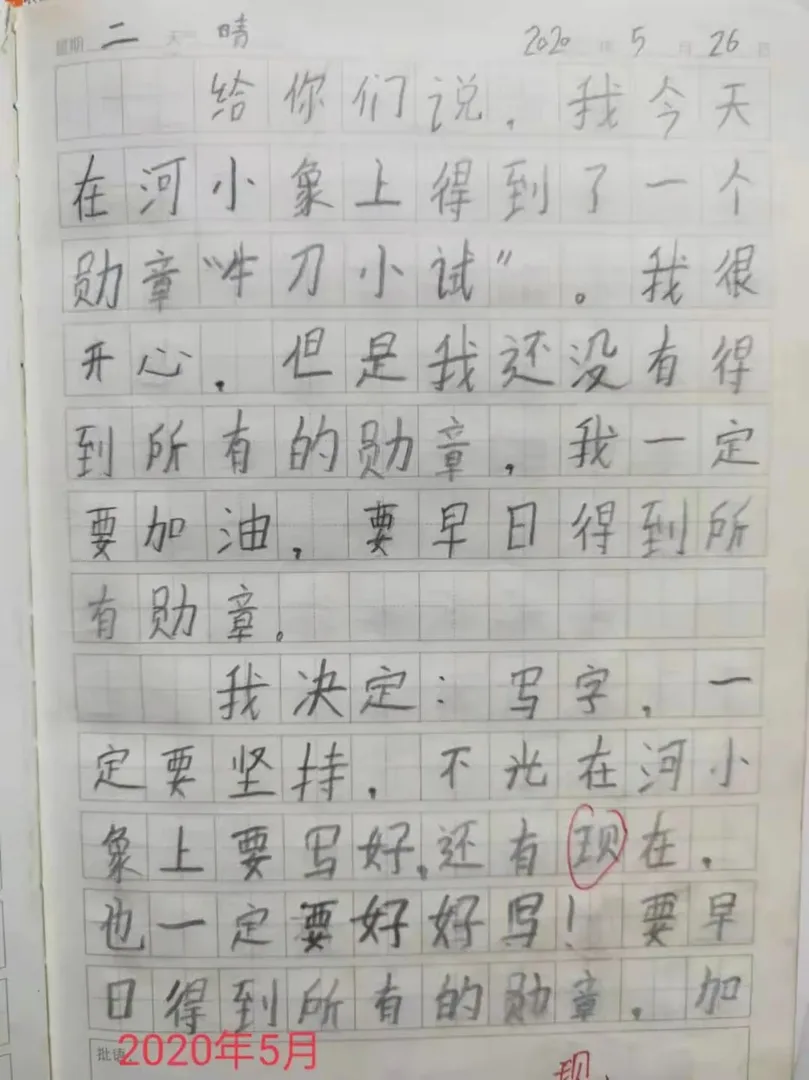 星期 二 天气 晴 2020 年 5 月 26 日
给你们说，我今天
在河小象上得到了一个
勋章“牛刀小试”。我很
开心，但是我还没有得
到所有的勋章，我一定
要加油，要早日得到所
有勋章。
我决定：写字，一
定要坚持，不光在河小
象上要写好，还有现在，
也一定要好好写！要早
日得到所有的勋章，加
批语
2020年5月
现